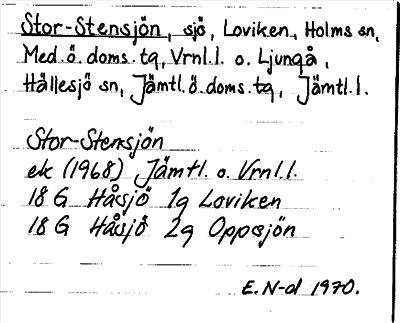 Stor-Stensjön, sjö, Loviken, Holms sn,
Med.ö.doms.tg, Vrnl.l. o. Ljungå,
Hällesjö sn, Jämtl.ö.doms.tg, Jämtl.l.
Stor-Stensjön
ek (1968) Jämtl. o. Vrnl.l.
18 G Håsjö 1g Loviken
18 G Håsjö 2g Oppsjön
E. N-d 1970.